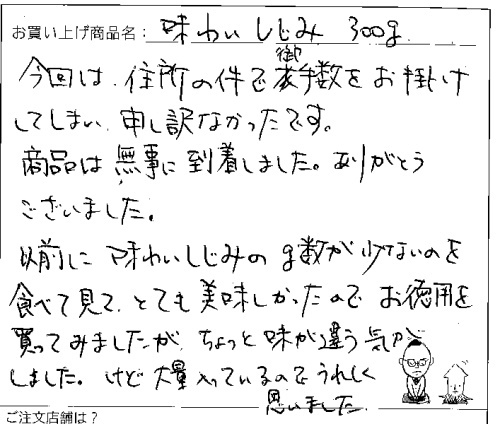 お買い上げ商品名： 味わい しじみ 300g
今回は、住所の件で御手数をお掛け
してしまい、申し訳なかったです。
商品は無事に到着しました。ありがとう
ございました。
以前に味わいしじみのg数が少ないのを
食べて見て、とても美味しかったので お徳用を
買ってみましたが、ちょっと味が違う気が
しました。けど大量入っているのでうれしく
思いました
ご注文店舗は？